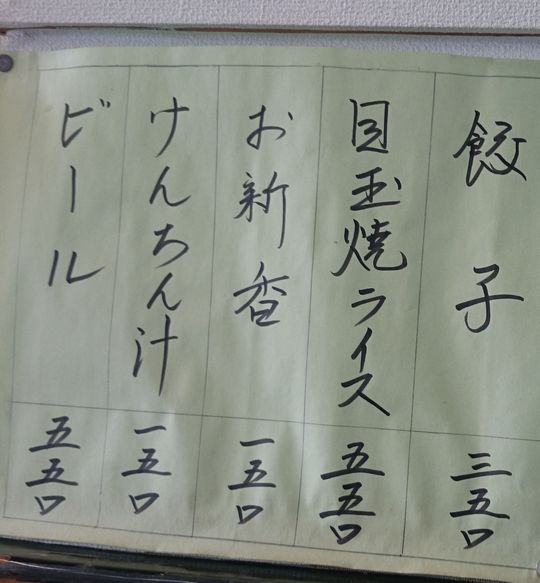 餃子 三五〇
目玉焼ライス 五五〇
お新香 一五〇
けんちん汁 一五〇
ビール 五五〇